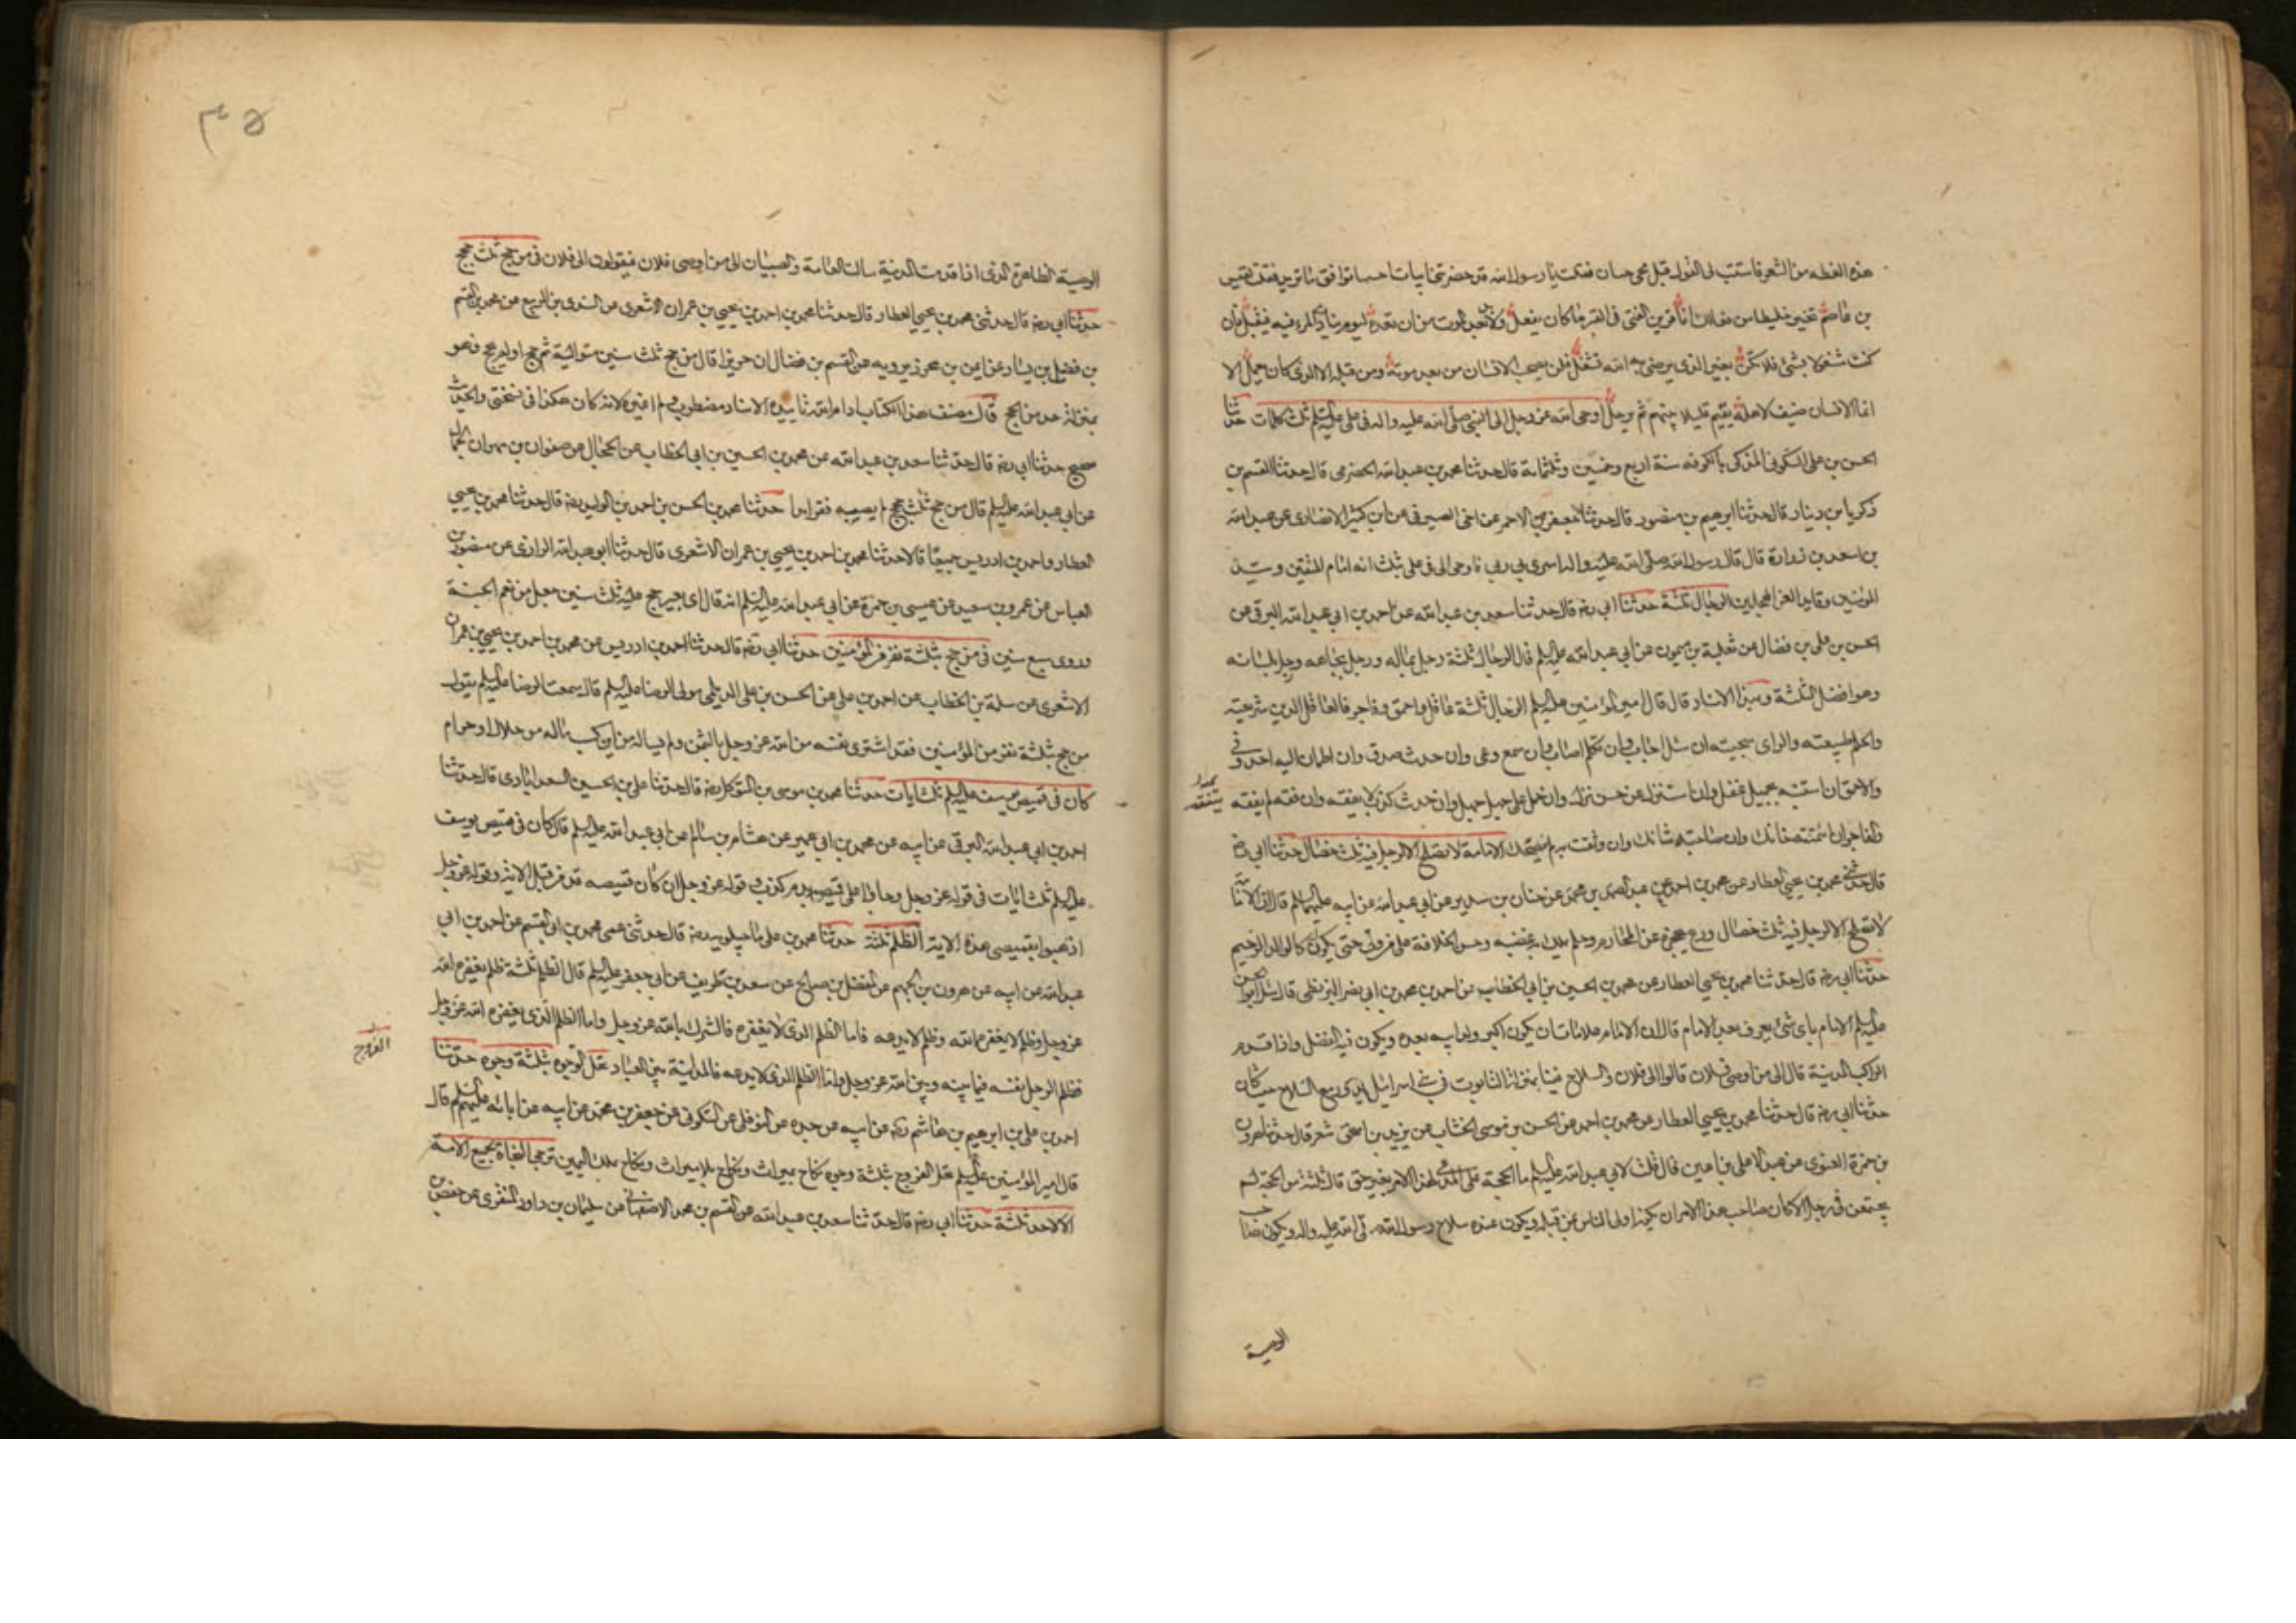 هذه العظه من الشعر فاستتب لى القول قبل مجى حسان فقلت يا رسول الله قد حضرتنى ابيات احسبها توافق ما تريد فقلت لقيس
بن عاصم تخير خليطا من فعالك انما قرين الفتى فى القبر ما كان يفعل ولا بد بعد الموت من ان تعده ليوم ينادى المرء فيه فيقبل فان
كنت مشغولا بشئ فلا تكن بغير الذى يرضى به الله تشغل فلن يصحب الانسان من بعد موته ومن قبله الا الذى كان يعمل الا
انما الانسان ضيف لاهله يقيم قليلا بينهم ثم يرحل اوحى الله عز وجل الى النبى صلى الله عليه واله فى على عليه السلم ثلث كلمات حدثنا
الحسن بن على السكونى المزكى بالكوفه سنة اربع وخمسين وثلثمائة قال حدثنا محمد بن عبد الله الحضرمى قال حدثنا القسم بن
زكريا بن دينار قال حدثنا ابرهيم بن منصور قال حدثنا جعفر بن الاحمر عن اخى الصيرفى عن ابن كثير الانصارى عن عبد الله
بن اسعد بن زرارة قال قال رسول الله صلى الله عليه واله اسرى بى ربى فاوحى الى فى على بثلث انه امام المتقين وسيد
المؤمنين وقايد الغر المحجلين الرجال ثلثة حدثنا ابى رضه قال حدثنا سعد بن عبد الله عن احمد بن ابى عبد الله البرقى عن
الحسن بن على بن فضال عن ثعلبة بن ميمون عن ابى عبد الله عليه السلم قال الرجال ثلثة رجل بماله ورجل بجاهه ورجل بلسانه
وهو افضل الثلثة وبهذا الاسناد قال قال امير المؤمنين عليه السلم الرجال ثلثة عاقل واحمق وفاجر فالعاقل الدين شرعيته
والحلم طبيعته والراى سجيته ان سئل اجاب وان تكلم اصاب وان سمع وعى وان حدث صدق وان اطمان اليه احد وفى
والاحمق ان استنبه بجميل غفل وان استنزل عن حسن نزل وان حمل على جهل جهل وان حدث كذب لا يفقه وان فقه لم يفقه
يتفقه
والفاجر ان ائتمنته خانك وان صاحبته شانك وان وثقت به لم ينصحك الامامة لا تصلح الا لرجل فيه ثلث خصال حدثنا ابى رضه
قال حدثنى محمد بن يحيى العطار عن محمد بن احمد عن عبد الصمد بن محمد عن حنان بن سدير عن ابى عبد الله عن ابيه عليهما السلم قال ان الامامة
لا تصلح الا لرجل فيه ثلث خصال ورع يحجزه عن المحارم وحلم يملك به غضبه وحسن الخلافة على من ولى حتى يكون كالوالد الرحيم
حدثنا ابى رضه قال حدثنا محمد بن يحيى العطار عن محمد بن الحسين بن ابى الخطاب عن احمد بن محمد بن ابى نصر البزنطى قال سئل ابو الحسن
عليه السلم الامام باى شئ يعرف بعد الامام قال ان للامام علامات ان يكون اكبر ولد ابيه بعده ويكون فيه الفضل واذا قدم
الراكب المدينة قال الى من اوصى فلان قالوا الى فلان والسلاح فينا بمنزلة التابوت فى بنى اسرائيل يدور مع السلاح حيث كان
حدثنا ابى رضه قال حدثنا محمد بن يحيى العطار عن محمد بن احمد عن الحسن بن موسى الخشاب عن يزيد بن اسحق شعر قال حدثنا هرون
بن حمزة الغنوى عن عبد الاعلى بن اعين قال قلت لابى عبد الله عليه السلم ما الحجة على المدعى لهذا الامر بغير حق قال ثلثة من الحجة لم
يجتمعن فى رجل الا كان صاحب هذا الامر ان يكون اولى الناس بمن قبله ويكون عنده سلاح رسول الله صلى الله عليه واله ويكون صاحب
الوصية
الوصية الظاهرة الذى اذا قدمت المدينة سالت العامة والصبيان الى من اوصى فلان فيقولون الى فلان فى من حج ثلث حجج
حدثنا ابى رضه قال حدثنى محمد بن يحيى العطار قال حدثنا محمد بن احمد بن يحيى بن عمران الاشعرى عن السندى بن الربيع عن محمد بن القسم
بن فضيل بن يسار عن ايمن بن محرز يرويه عن القسم بن فضال ان حريزا قال من حج ثلث سنين متوالية ثم حج او لم يحج فهو
بمنزلة مدمن الحج قال مصنف هذا الكتاب ادام الله تاييده الاسناد مضطرب ولم اغيره لانه كان هكذا فى نسختى والحديث
صحيح حدثنا ابى رضه قال حدثنا سعد بن عبد الله عن محمد بن الحسين بن ابى الخطاب عن الحجال عن صفوان بن مهران الجمال
عن ابى عبد الله عليه السلم قال من حج ثلث حجج لم يصبه فقر ابدا حدثنا محمد بن الحسن بن احمد بن الوليد رضه قال حدثنا محمد بن يحيى
العطار واحمد بن ادريس جميعا قالا حدثنا محمد بن احمد بن يحيى بن عمران الاشعرى قال حدثنا ابو عبد الله الرازى عن منصور بن
العباس عن عمرو بن سعيد عن عيسى بن حمزة عن ابى عبد الله عليه السلم انه قال اى بعير حج عليه ثلث سنين جعل من نعم الجنة
وروى سبع سنين فى من حج بثلثة نفر من المؤمنين حدثنا ابى رضه قال حدثنا احمد بن ادريس عن محمد بن احمد بن يحيى بن عمران
الاشعرى عن سلمة بن الخطاب عن احمد بن على عن الحسن بن على الديلمى مولى الرضا عليه السلم قال سمعت الرضا عليه السلم يقول
من حج بثلثة نفر من المؤمنين فقد اشترى نفسه من الله عز وجل بالثمن ولم يساله من اين كسب ماله من حلال او حرام
كان فى قميص يوسف عليه السلم ثلث ايات حدثنا محمد بن موسى بن المتوكل رضه قال حدثنا على بن الحسين السعدابادى قال حدثنا
احمد بن ابى عبد الله البرقى عن ابيه عن محمد بن ابى عمير عن هشام بن سالم عن ابى عبد الله عليه السلم قال كان فى قميص يوسف
عليه السلم ثلث ايات فى قوله عز وجل وجاؤا على قميصه بدم كذب وقوله عز وجل ان كان قميصه قد من قبل الاية وقوله عز وجل
اذهبوا بقميصى هذا الاية الظلم ثلثة حدثنا محمد بن على ماجيلويه رضه قال حدثنى عمى محمد بن ابى القسم عن احمد بن ابى
عبد الله عن ابيه عن هرون بن الجهم عن المفضل بن صالح عن سعد بن طريف عن ابى جعفر عليه السلم قال الظلم ثلثة ظلم يغفره الله
عز وجل وظلم لا يغفره الله وظلم لا يدعه فاما الظلم الذى لا يغفره فالشرك بالله عز وجل واما الظلم الذى يغفره الله عز وجل
فظلم الرجل نفسه فيما بينه وبين الله عز وجل واما الظلم الذى لا يدعه فالمداينة بين العباد تحل الفروج بثلثة وجوه حدثنا
الفروج
احمد بن على بن ابرهيم بن هاشم رضه عن ابيه عن جده عن النوفلى عن السكونى عن جعفر بن محمد عن ابيه عن ابائه عليهم السلم قال
قال امير المؤمنين عليه السلم تحل الفروج بثلثة وجوه نكاح بميراث ونكاح بلا ميراث ونكاح بملك اليمين ترجى النجاة لجميع الامة
الا لاحد ثلثة حدثنا ابى رضه قال حدثنا سعد بن عبد الله عن القسم بن محمد الاصفهانى عن سليمان بن داود المنقرى عن حفص بن